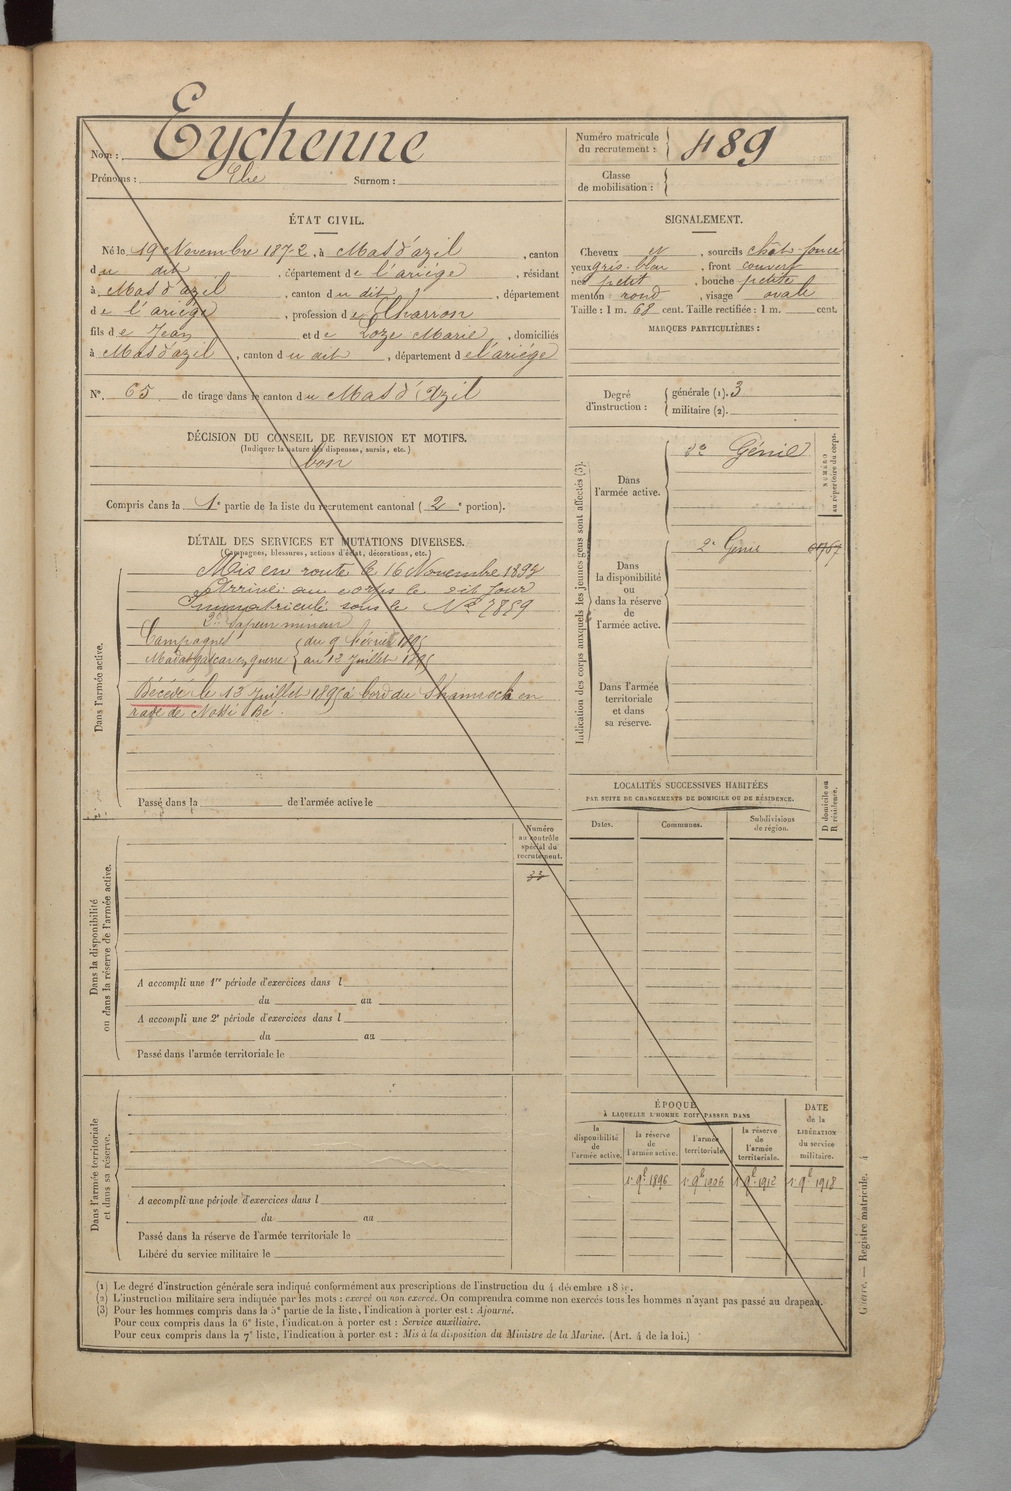 Nom : Eychenne
Prénoms : Elie Surnom :
Numéro matricule du recrutement : 489
Classe de mobilisation :
ÉTAT CIVIL.
Né le 19 Novembre 1872, à Mas d'azil, canton
du dit, département de l'ariége, résidant
à Mas d'azil, canton du dit, département
de l'ariége, profession de Charron
fils de Jean et de Loze Marie, domiciliés
à Mas d'azil, canton du dit, département de l'ariége
N°. 65 de tirage dans le canton du Mas d'Azil
DÉCISION DU CONSEIL DE REVISION ET MOTIFS.
(Indiquer la nature des dispenses, sursis, etc.)
bon
Compris dans la 1e partie de la liste du recrutement cantonal (2e portion).
DÉTAIL DES SERVICES ET MUTATIONS DIVERSES.
(Campagnes, blessures, actions d'éclat, décorations, etc.)
Dans l'armée active.
Mis en route le 16 Novembre 1893
Arrivé au corps le dit jour
Immatriculé sous le No 7859
Sapeur mineur
Campagnes { du 9 Février 1895
Madagascar en guerre { au 13 Juillet 1895
Décédé le 13 Juillet 1895 à bord du Shamrock en
rade de Nossi Bé.
Passé dans la de l'armée active le
Numéro
au contrôle
spécial du
recrutement.
Dans la disponibilité
ou dans la réserve de l'armée active.
A accompli une 1re période d'exercices dans l
du au
A accompli une 2e période d'exercices dans l
du au
Passé dans l'armée territoriale le
Dans l'armée territoriale
et dans sa réserve.
A accompli une période d'exercices dans l
du au
Passé dans la réserve de l'armée territoriale le
Libéré du service militaire le
SIGNALEMENT.
Cheveux et, sourcils chât-foncé
yeux gris-bleu, front couvert
nez petit, bouche petite
menton rond, visage ovale
Taille : 1 m. 68 cent. Taille rectifiée : 1 m. cent.
MARQUES PARTICULIÈRES :
Degré d'instruction :
générale (1). 3
militaire (2).
Indication des corps auxquels les jeunes gens sont affectés (3).
NUMÉRO
au répertoire du corps.
Dans
l'armée active.
2e Génie
Dans
la disponibilité
ou
dans la réserve
de
l'armée active.
2e Génie
Dans l'armée
territoriale
et dans
sa réserve.
LOCALITÉS SUCCESSIVES HABITÉES
PAR SUITE DE CHANGEMENTS DE DOMICILE OU DE RÉSIDENCE.
D domicile ou
R résidence.
Dates. Communes. Subdivisions
de région.
ÉPOQUE
À LAQUELLE L'HOMME DOIT PASSER DANS
DATE
de la
LIBÉRATION
du service
militaire.
la
disponibilité
de
l'armée active.
la réserve
de
l'armée active.
l'armée
territoriale.
la réserve
de
l'armée
territoriale.
1er 9b 1896 1er 9b 1906 1er 9b 1912 1er 9b 1918
(1) Le degré d'instruction générale sera indiqué conformément aux prescriptions de l'instruction du 4 décembre
(2) L'instruction militaire sera indiquée par les mots : exercé ou non exercé. On comprendra comme non exercés tous les hommes n'ayant pas passé au drapeau.
(3) Pour les hommes compris dans la 5e partie de la liste, l'indication à porter est : Ajourné.
Pour ceux compris dans la 6e liste, l'indication à porter est : Service auxiliaire.
Pour ceux compris dans la 7e liste, l'indication à porter est : Mis à la disposition du Ministre de la Marine. (Art. 4 de la loi.)
Guerre. — Registre matricule. 4